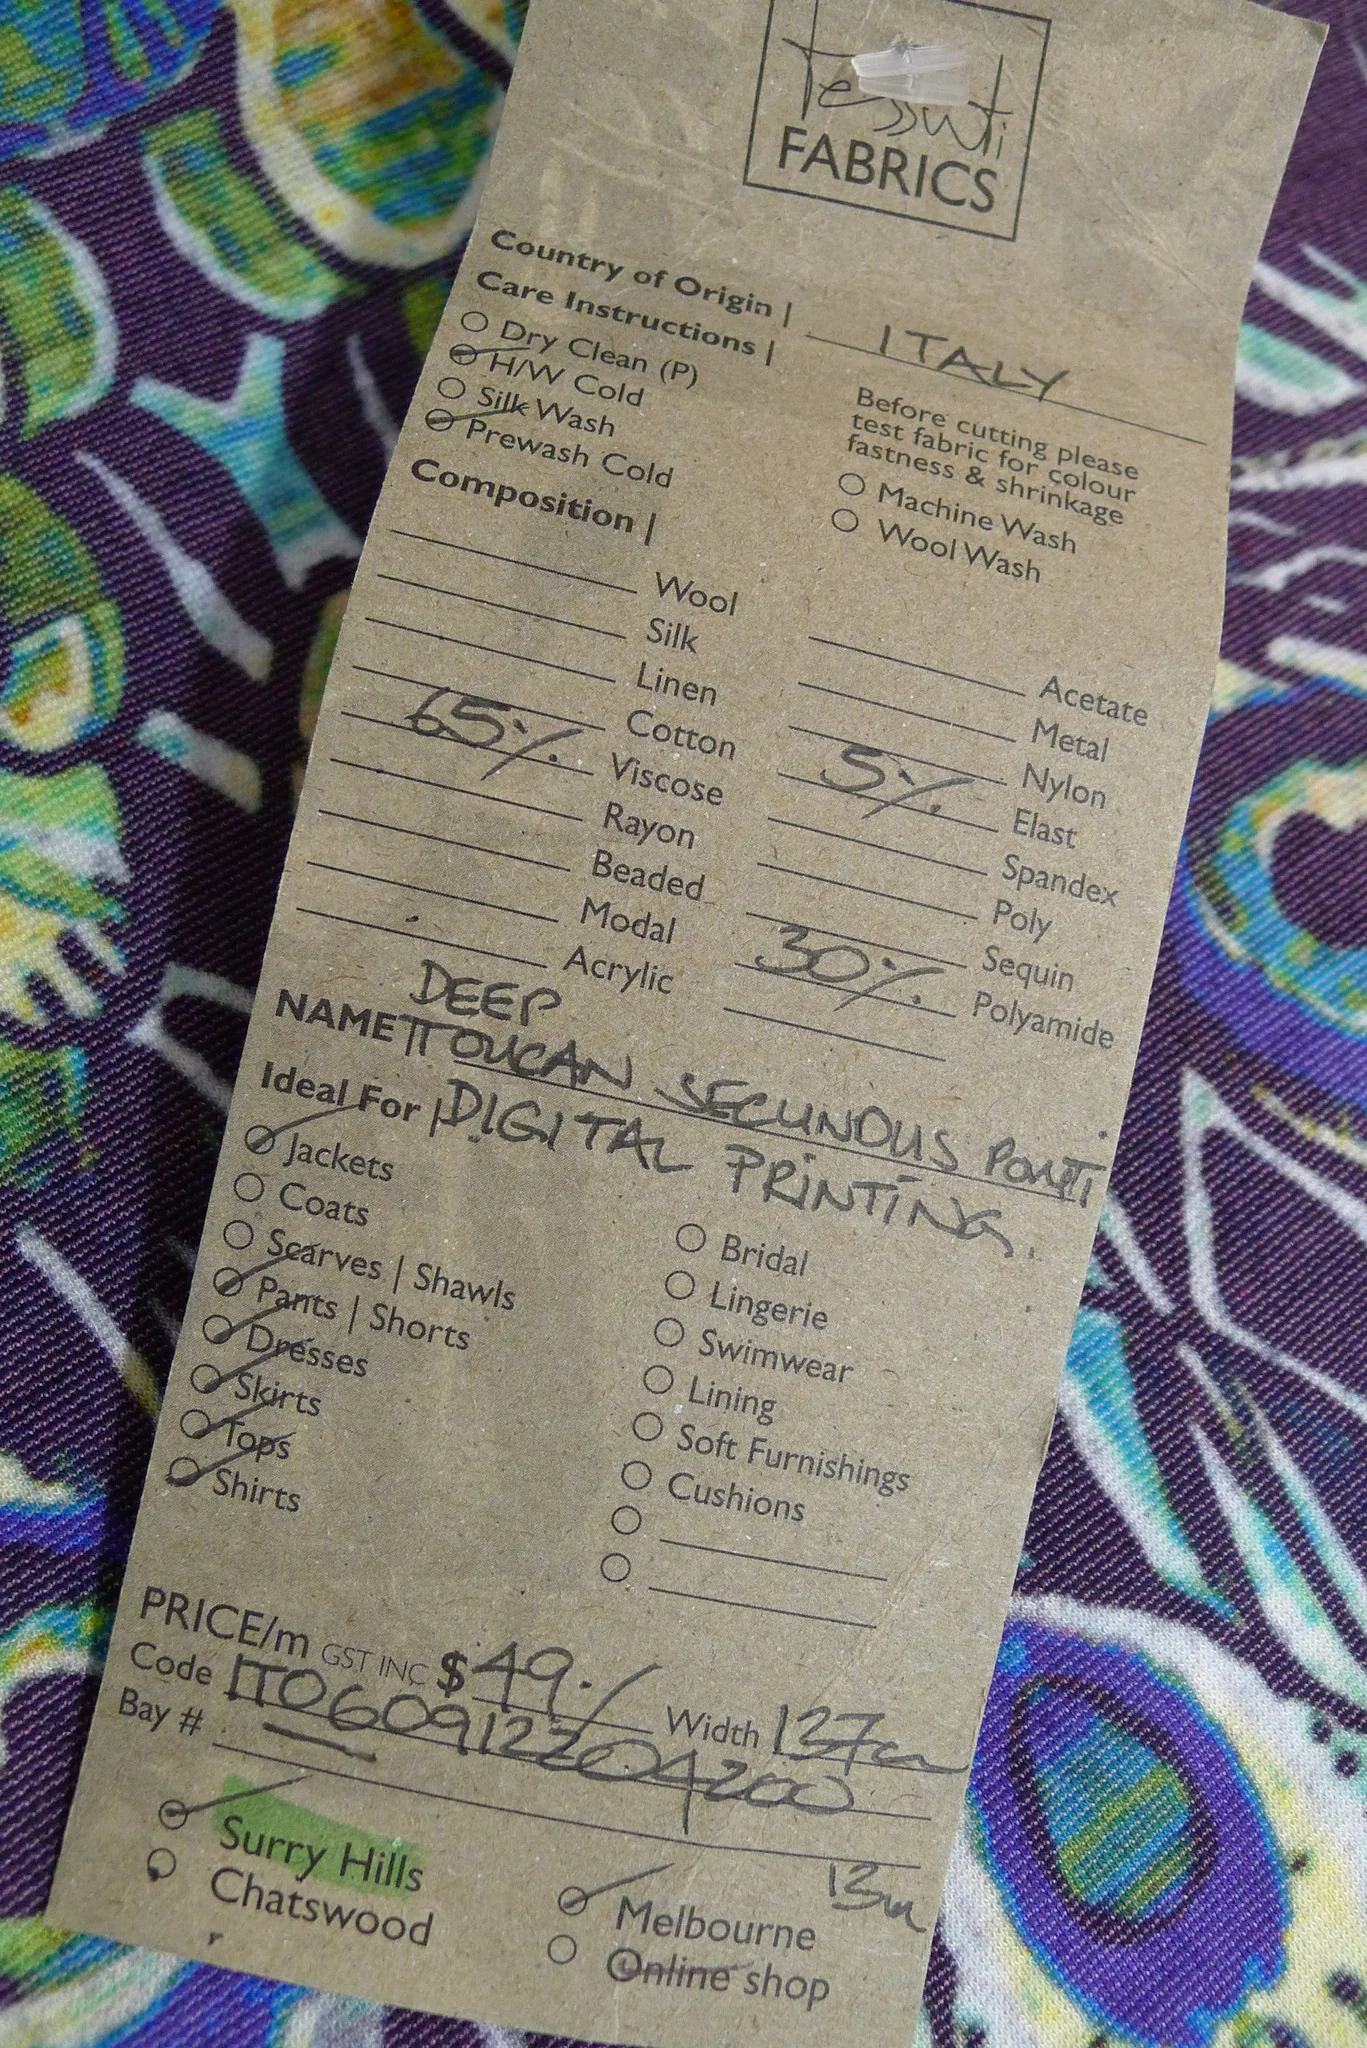 Tessuti
FABRICS
Country of Origin | ITALY
Care Instructions |
Dry Clean (P)
H/W Cold
Silk Wash
Prewash Cold
Before cutting please
test fabric for colour
fastness & shrinkage
Machine Wash
Wool Wash
Composition |
Wool
Silk
Linen
Cotton
65% Viscose
Rayon
Beaded
Modal
Acrylic
Acetate
Metal
Nylon
5% Elast
Spandex
Poly
Sequin
30% Polyamide
DEEP
NAME TOUCAN SECUNDUS PONTI
Ideal For | DIGITAL PRINTING.
Jackets
Coats
Scarves | Shawls
Pants | Shorts
Dresses
Skirts
Tops
Shirts
Bridal
Lingerie
Swimwear
Lining
Soft Furnishings
Cushions
PRICE/m GST INC $49./ Width 137cm
Code ITO60912204200
Bay #
13m
Surry Hills
Chatswood
Melbourne
Online shop